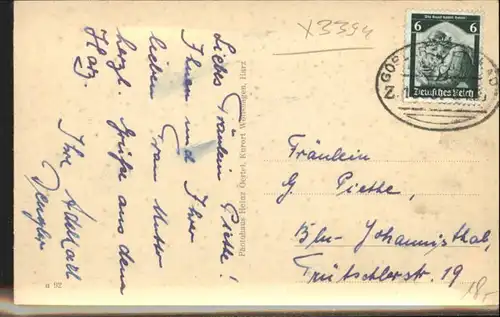 x3394
Liebes Fräulein Piethe!
Ihnen und Ihrer
lieben Frau Mutter
herzl. Grüße aus dem
Harz.
Ihre
Photohaus Heinz Oertel, Kurort Wendlingen, Harz
6 6
Deutsches Reich
Fräulein
G. Piethe,
Bln-Johannisthal,
Trützschlerstr. 19
18,-
n 92